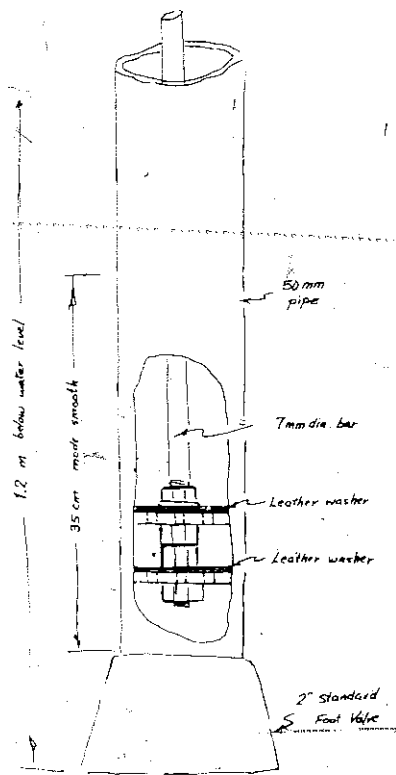 50mm
pipe
1.2 m below water level
35 cm made smooth
7mm dia. bar
Leather washer
Leather washer
2" Standard
Foot Valve